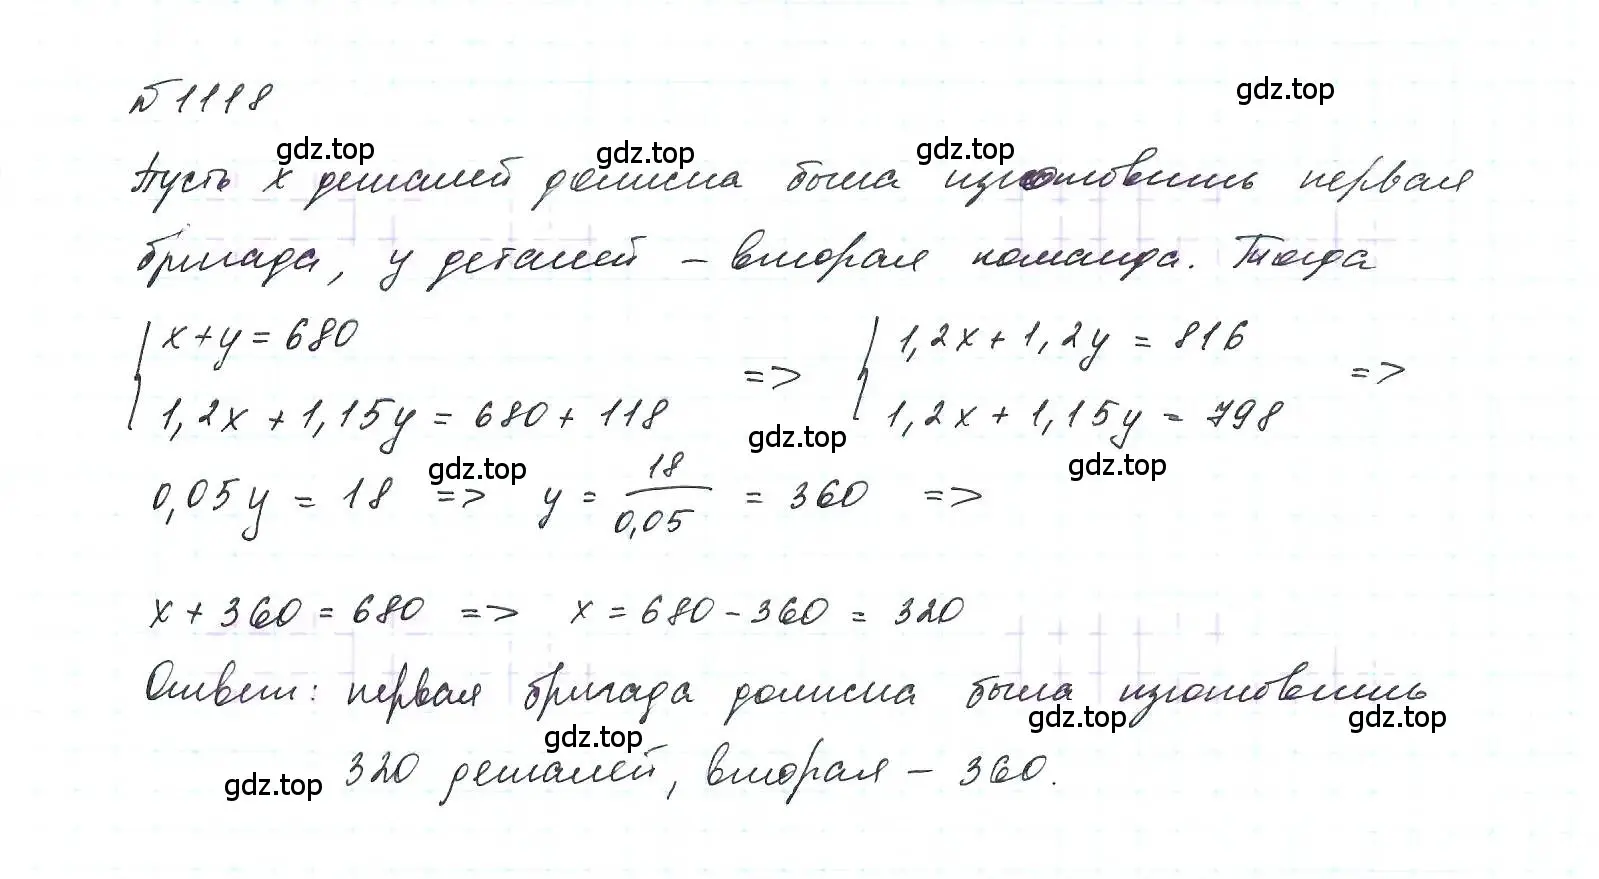 №1118
gdz.top
gdz.top gdz.top gdz.top
Пусть x деталей должна была изготовить первая
бригада, y деталей – вторая команда. Тогда
{ x+y=680 => { 1,2x+1,2y=816 =>
1,2x+1,15y=680+118 1,2x+1,15y=798
gdz.top gdz.top gdz.top
0,05y=18 => y=18/0,05=360 =>
x+360=680 => x=680-360=320
Ответ: первая бригада должна была изготовить
gdz.top gdz.top gdz.top
320 деталей, вторая – 360.
gdz.top